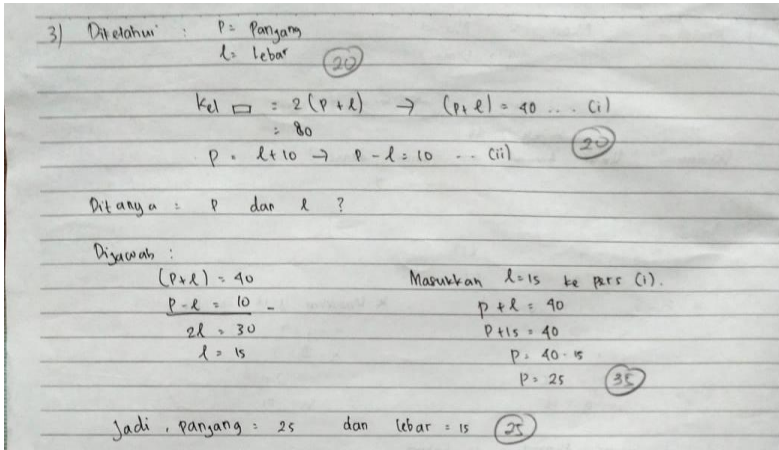 3) Diketahui : P = Panjang
l = Lebar
20
Kel ▭ = 2 (P + l) → (P + l) = 40 ... (i)
= 80
20
P = l + 10 → P - l = 10 ... (ii)
Ditanya = P dan l ?
Dijawab :
(P + l) = 40
P - l = 10 -
2l = 30
l = 15
Masukkan l = 15 ke pers (i).
P + l = 40
P + 15 = 40
P = 40 - 15
P = 25
35
Jadi, panjang = 25 dan lebar = 15
25